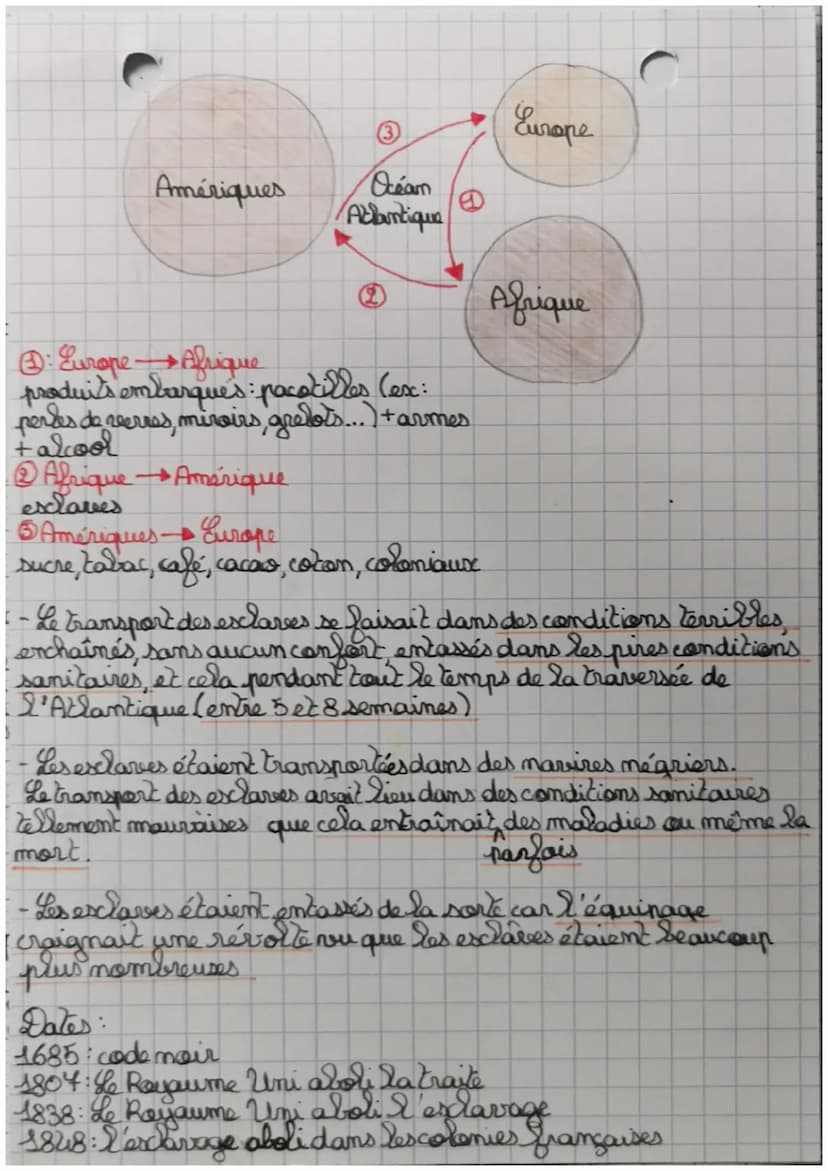 Amériques
Europe
Afrique
Océan
Atlantique
③
①
②
①: Europe → Afrique
produits embarqués: pacotilles (ex:
perles de verres, miroirs, grelots...) + armes
+ alcool
② Afrique → Amérique
esclaves
③ Amériques → Europe
sucre, tabac, café, cacao, coton, coloniaux
- Le transport des esclaves se faisait dans des conditions terribles,
enchaînés, sans aucun confort, entassés dans les pires conditions
sanitaires, et cela pendant tout le temps de la traversée de
l'Atlantique (entre 5 et 8 semaines)
- Les esclaves étaient transportées dans des navires négriers.
Le transport des esclaves avait lieu dans des conditions sanitaires
tellement mauvaises que cela entraînait des maladies ou même la
mort.
parfois
- Les esclaves étaient entassés de la sorte car l'équipage
craignait une révolte vu que les esclaves étaient beaucoup
plus nombreuses
Dates:
1685: code noir
1807: Le Royaume Uni aboli la traite
1838: Le Royaume Uni aboli l'esclavage
1848: l'esclavage aboli dans les colonies françaises